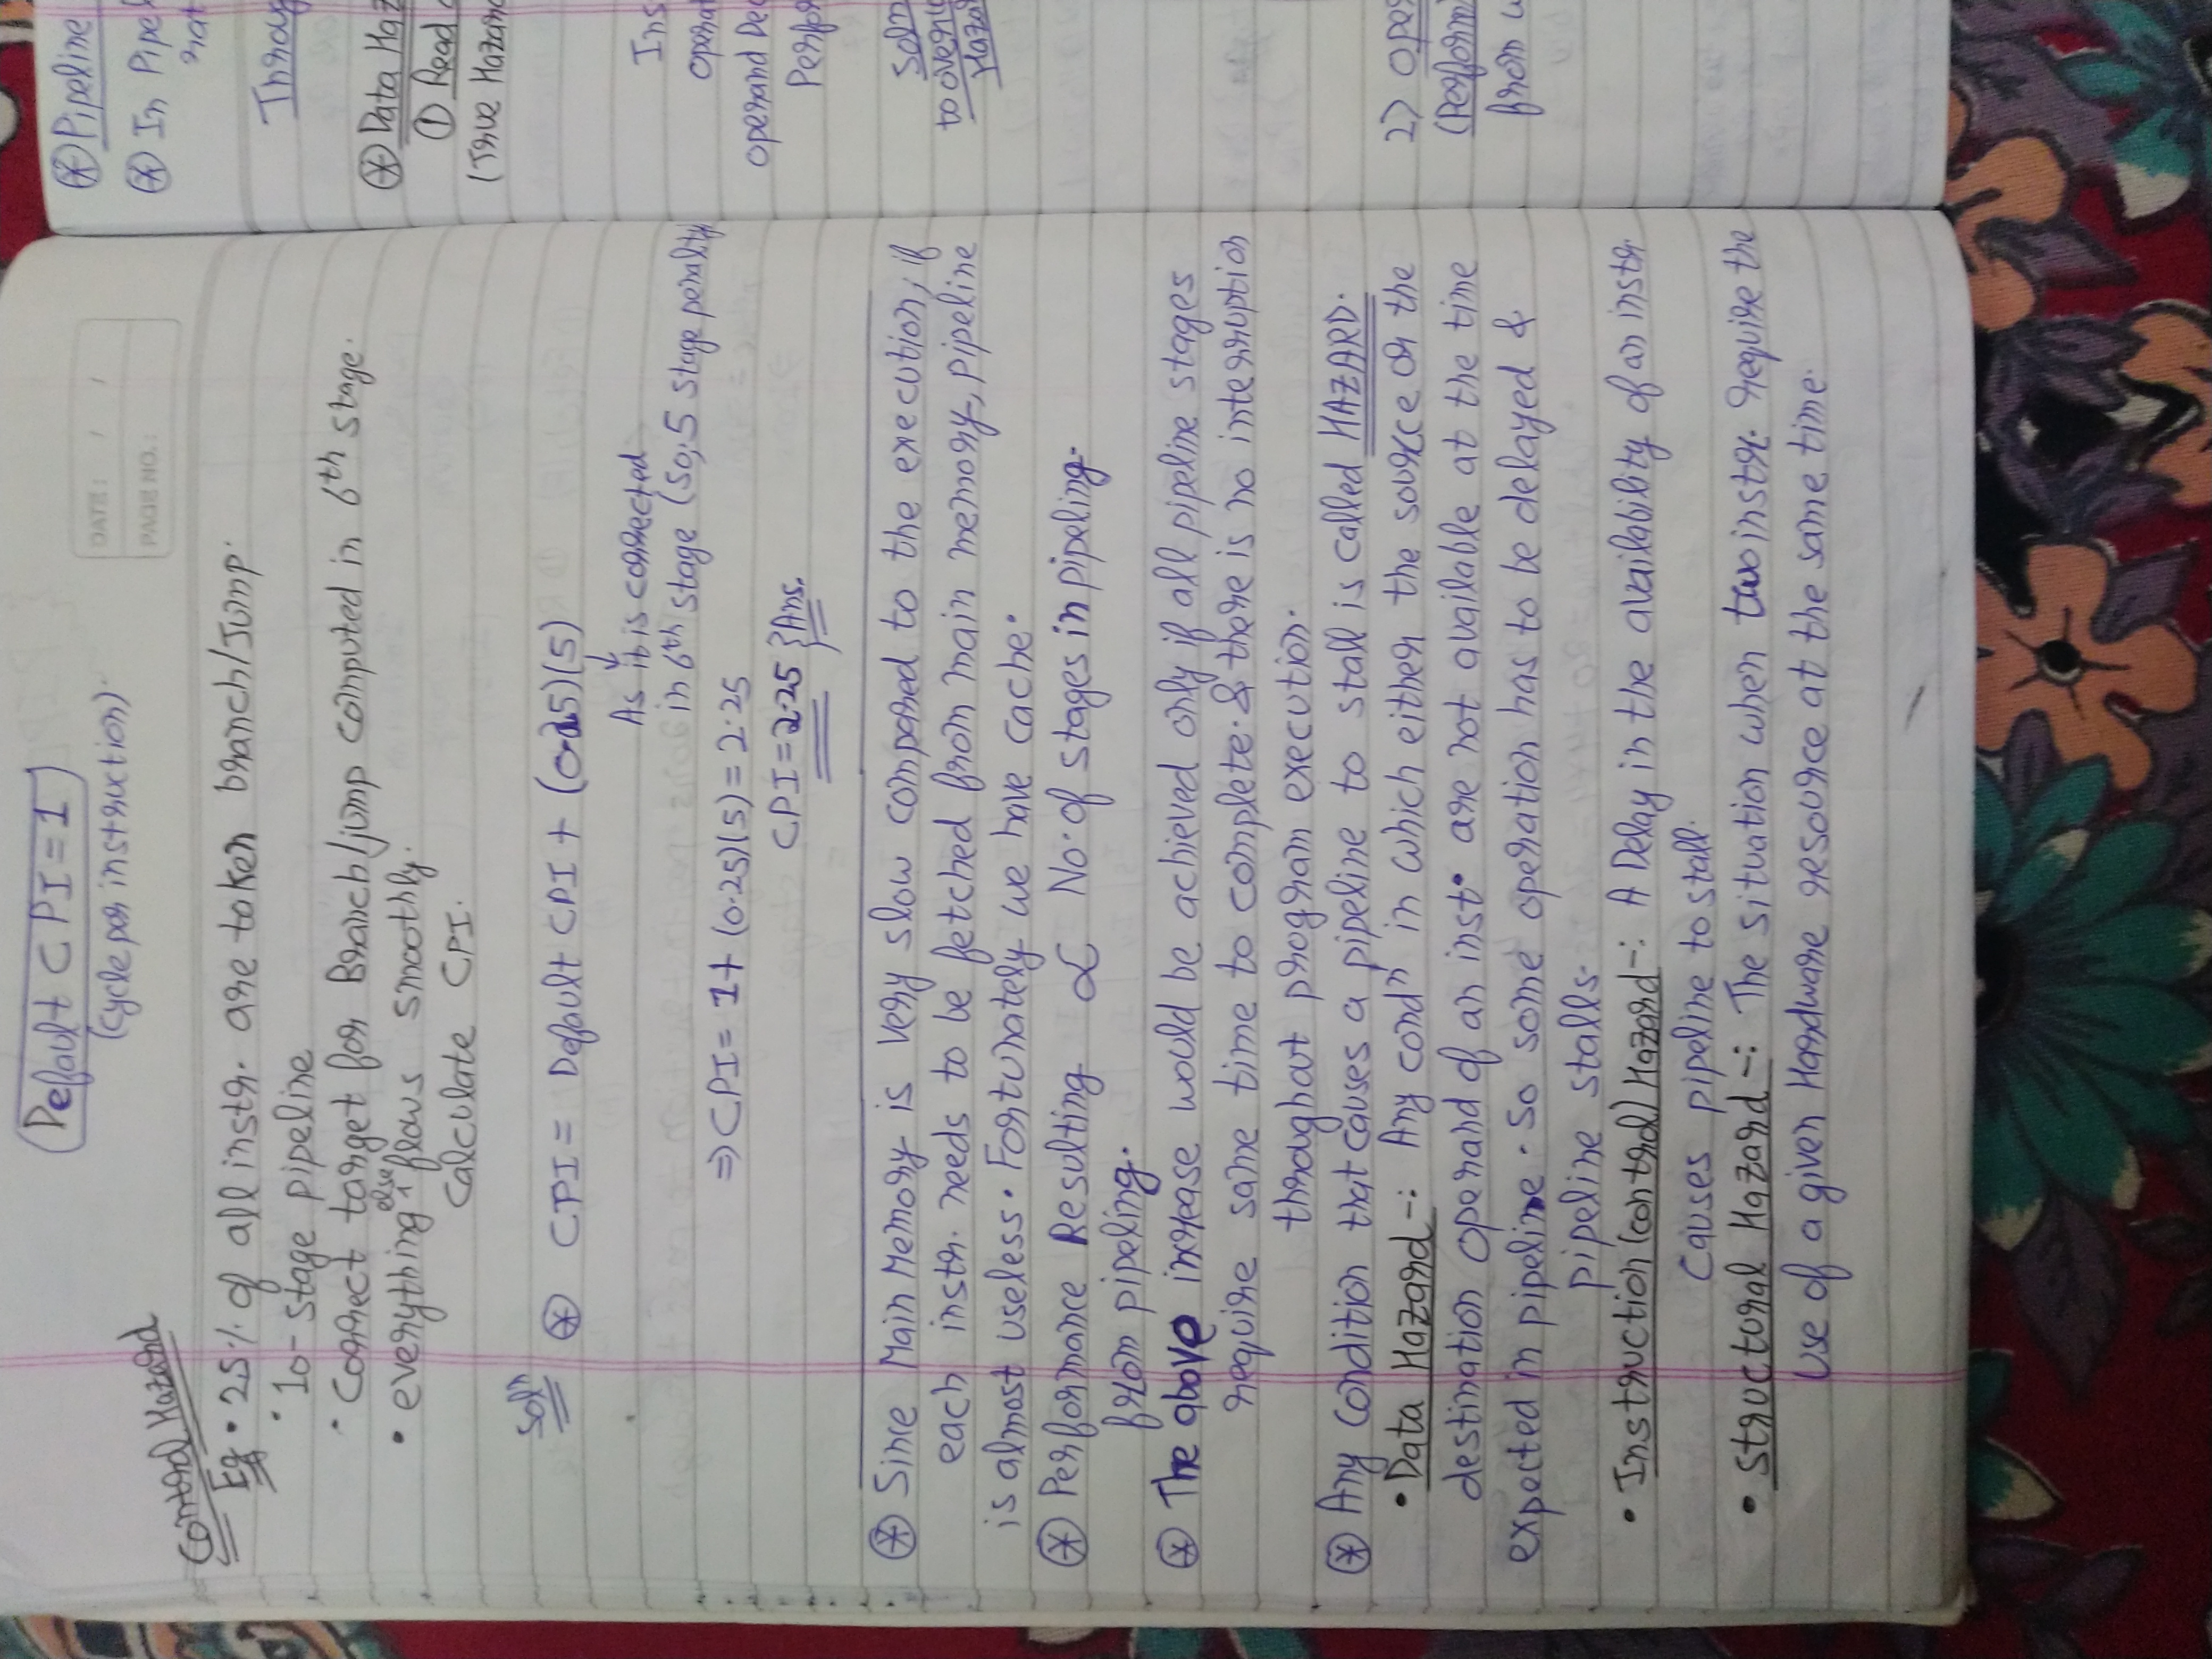 Default CPI = 1
(Cycle per instruction)
DATE: / /
PAGE NO.:
Control Hazard
Eg • 25% of all instr. are taken branch/Jump.
• 10-stage pipeline
• Correct target for Branch/jump computed in 6th stage.
• everything else flows smoothly.
Calculate CPI.
Solⁿ ⊛ CPI = Default CPI + (0.25)(5)
↓
As it is corrected
in 6th stage (so, 5 stage penalty)
⇒ CPI = 1 + (0.25)(5) = 2.25
CPI = 2.25 } Ans.
⊛ Since Main Memory is very slow compared to the execution, if
each instr. needs to be fetched from main memory, pipeline
is almost useless. Fortunately we have cache.
⊛ Performance Resulting ∝ No. of stages in pipeling.
from pipeling.
⊛ The above increase would be achieved only if all pipeline stages
require same time to complete. & there is no interruption
throughout program execution.
⊛ Any Condition that causes a pipeline to stall is called HAZARD.
• Data Hazard -: Any condⁿ in which either the source or the
destination operand of an inst. are not available at the time
expected in pipeline. So some operation has to be delayed &
pipeline stalls.
• Instruction (control) Hazard -: A Delay in the availability of an instr.
causes pipeline to stall.
• Structural Hazard -: The situation when two instr. require the
use of a given Hardware resource at the same time.
⊛ Pipeline
⊛ In
⊛ Data
① Read
(True
Ins
Operand
Solⁿ
to
2)
from